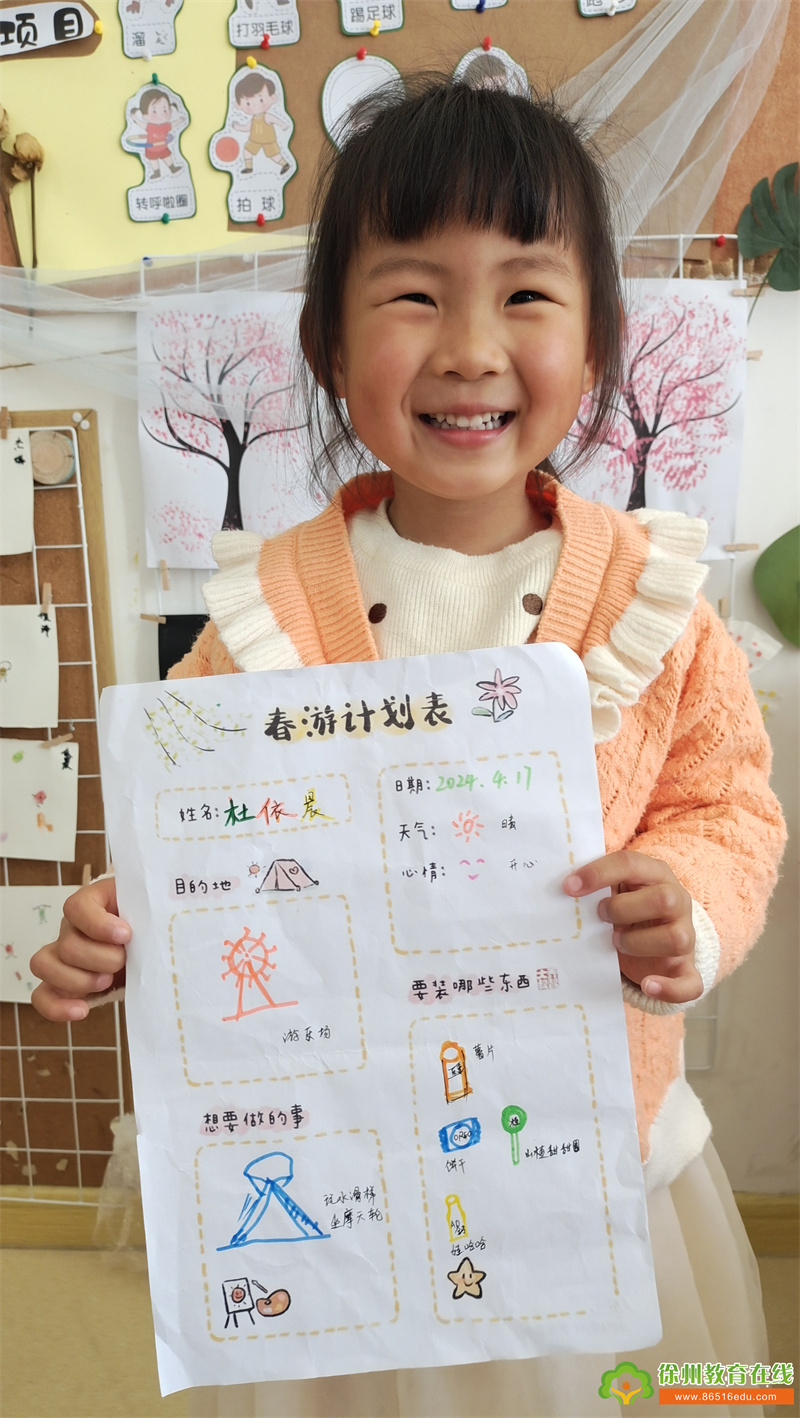 项目
溜
打羽毛球
踢足球
转呼啦圈
拍球
春游计划表
姓名：杜依晨
日期：2024.4.17
天气： 晴
心情： 开心
目的地
游乐场
要装哪些东西
薯片
饼干
山楂甜甜圈
AD
娃哈哈
想要做的事
玩水滑梯
坐摩天轮
徐州教育在线
www.86516edu.com